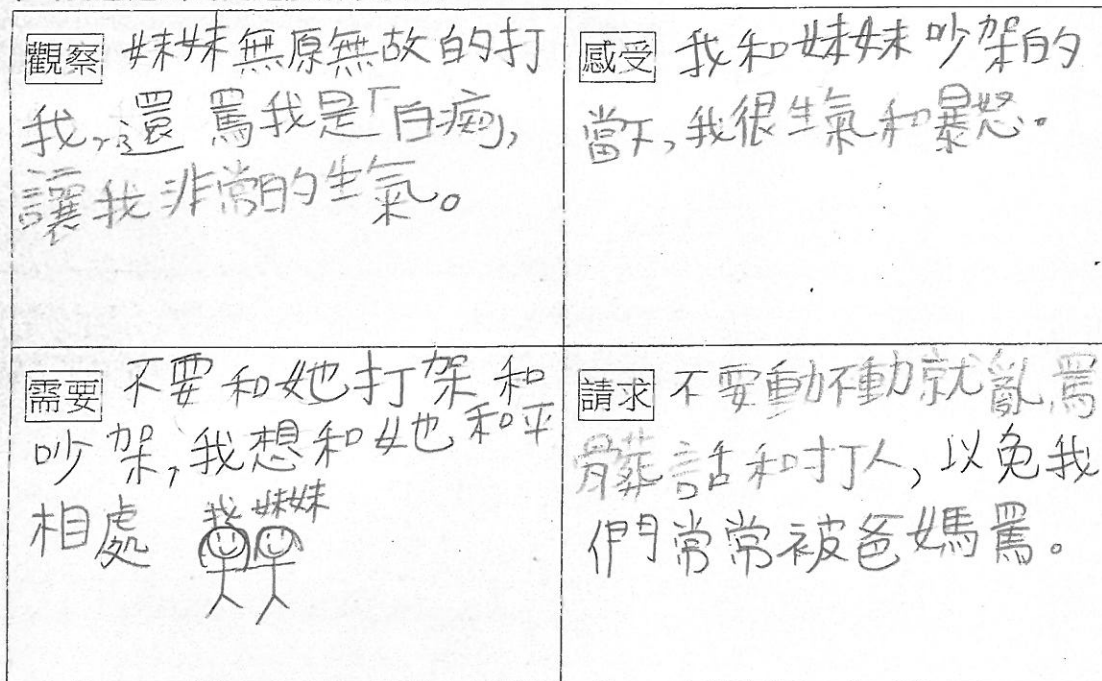 觀察 妹妹無原無故的打
我,還罵我是「白癡」,
讓我非常的生氣。
感受 我和妹妹吵架的
當下,我很生氣和暴怒。
需要 不要和她打架和
吵架,我想和她和平
相處
我 妹妹
請求 不要動不動就亂罵
髒話和打人,以免我
們常常被爸媽罵。